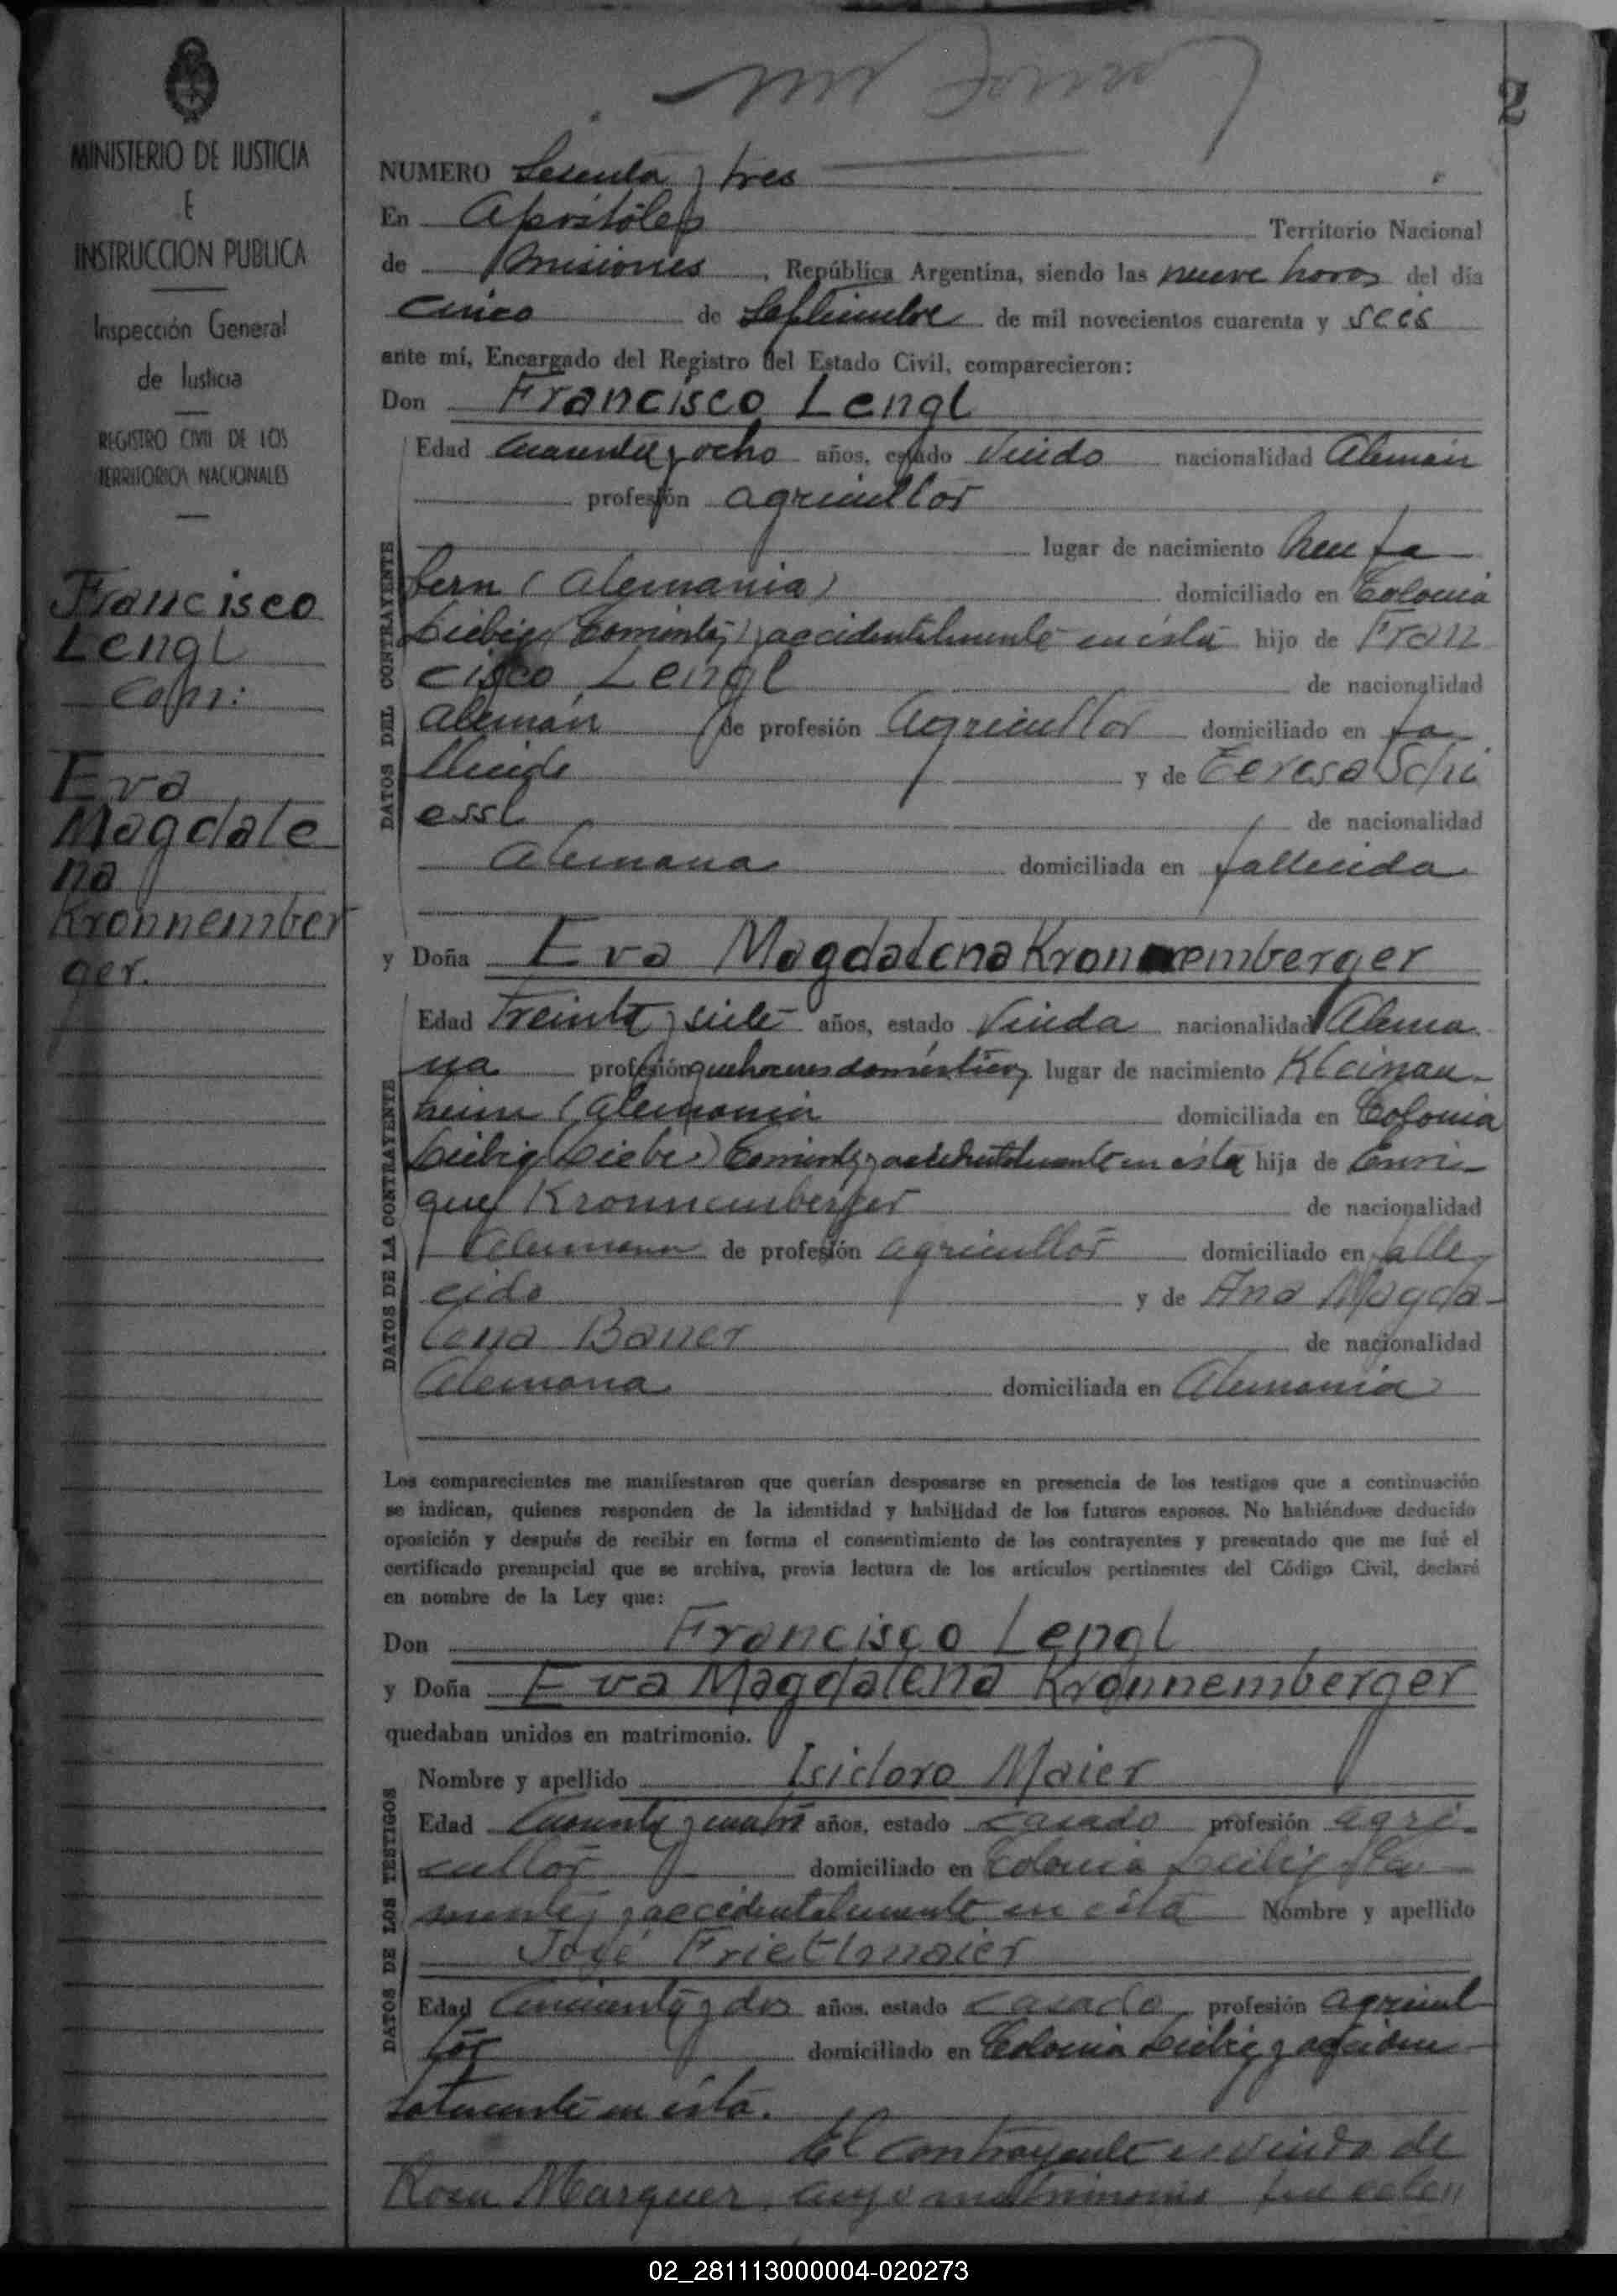 2
MINISTERIO DE JUSTICIA
E
INSTRUCCION PUBLICA
Inspección General
de Justicia
REGISTRO CIVIL DE LOS
TERRITORIOS NACIONALES
Francisco
Lengl
con:
Eva
Magdale
na
Kronnember
ger.
NUMERO Sesenta y tres
En Apóstoles Territorio Nacional
de Misiones, República Argentina, siendo las nueve horas del día
cinco de Septiembre de mil novecientos cuarenta y seis
ante mí, Encargado del Registro del Estado Civil, comparecieron:
Don Francisco Lengl
DATOS DEL CONTRAYENTE
Edad cuarenta y ocho años, estado Viudo nacionalidad Alemán
profesión agricultor
lugar de nacimiento
(Alemania) domiciliado en Colonia
Liebig (Corrientes) y accidentalmente en ésta hijo de Fran
cisco Lengl de nacionalidad
alemán de profesión Agricultor domiciliado en fa
llecido y de Teresa Schi
essl de nacionalidad
Alemana domiciliada en fallecida
y Doña Eva Magdalena Kronnemberger
DATOS DE LA CONTRAYENTE
Edad Treinta y siete años, estado Viuda nacionalidad Alema
na profesión quehaceres domésticos lugar de nacimiento Kleinau-
heim (Alemania domiciliada en Colonia
Liebig Corrientes y accidentalmente en ésta hija de Enri-
que Kronnemberger de nacionalidad
Alemana de profesión agricultor domiciliado en falle
cido y de Ana Magda-
lena Bauer de nacionalidad
Alemana domiciliada en Alemania
Los comparecientes me manifestaron que querían desposarse en presencia de los testigos que a continuación
se indican, quienes responden de la identidad y habilidad de los futuros esposos. No habiéndose deducido
oposición y después de recibir en forma el consentimiento de los contrayentes y presentado que me fué el
certificado prenupcial que se archiva, previa lectura de los artículos pertinentes del Código Civil, declaré
en nombre de la Ley que:
Don Francisco Lengl
y Doña Eva Magdalena Kronnemberger
quedaban unidos en matrimonio.
DATOS DE LOS TESTIGOS
Nombre y apellido Isidoro Maier
Edad Cuarenta y cuatro años, estado casado profesión agri-
cultor domiciliado en Colonia Liebig
y accidentalmente en ésta Nombre y apellido
José Frietlmaier
Edad Cincuenta y dos años, estado casado, profesión agricul
tor domiciliado en Colonia Liebig y acciden
talmente en ésta.
El contrayente es viudo de
Rosa Marquer, cuyo matrimonio fue cele"
02_281113000004-020273